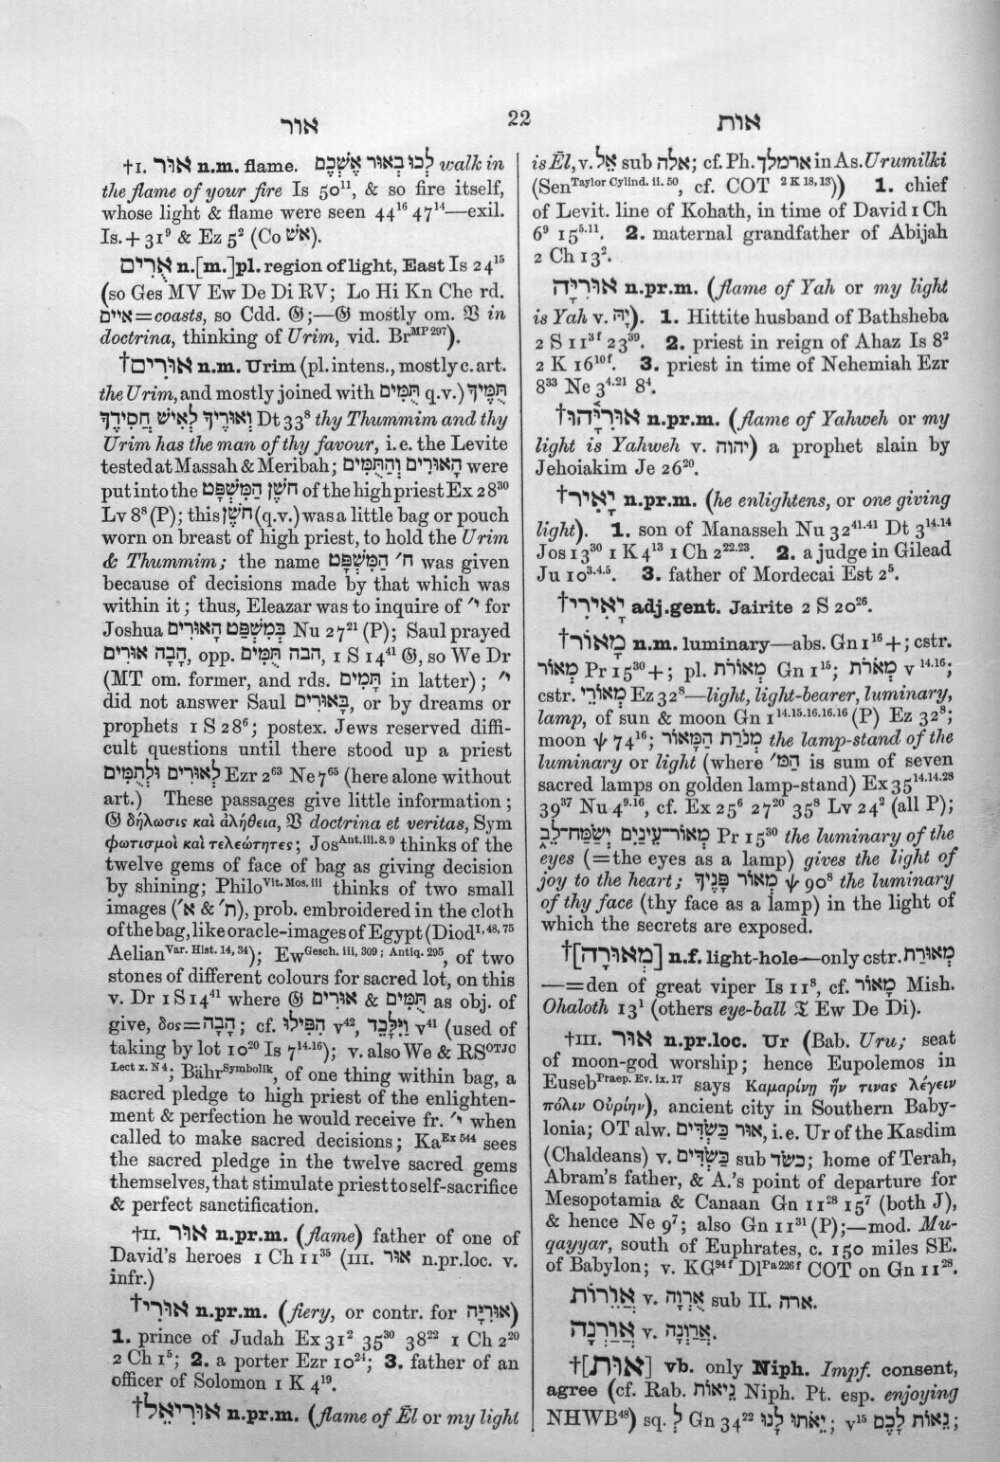 אור
22
אות
†I. אוּר n.m. flame. לְכוּ בְּאוּר אֶשְׁכֶם walk in
the flame of your fire Is 50¹¹, & so fire itself,
whose light & flame were seen 44¹⁶ 47¹⁴—exil.
Is. + 31⁹ & Ez 5² (Co אֵשׁ).
אֻרִים n.[m.]pl. region of light, East Is 24¹⁵
(so Ges MV Ew De Di RV; Lo Hi Kn Che rd.
איים=coasts, so Cdd. 𝔊;—𝔊 mostly om. 𝔙 in
doctrina, thinking of Urim, vid. Br^MP 297).
†אוּרִים n.m. Urim (pl. intens., mostly c. art.
the Urim, and mostly joined with תֻּמִּים q.v.) תֻּמֶּיךָ
וְאוּרֶיךָ לְאִישׁ חֲסִידֶךָ Dt 33⁸ thy Thummim and thy
Urim has the man of thy favour, i.e. the Levite
tested at Massah & Meribah; הָאוּרִים וְהַתֻּמִּים were
put into the חשֶׁן הַמִּשְׁפָּט of the high priest Ex 28³⁰
Lv 8⁸ (P); this חשֶׁן (q.v.) was a little bag or pouch
worn on breast of high priest, to hold the Urim
& Thummim; the name ח׳ הַמִּשְׁפָּט was given
because of decisions made by that which was
within it; thus, Eleazar was to inquire of י׳ for
Joshua בְּמִשְׁפַּט הָאוּרִים Nu 27²¹ (P); Saul prayed
הָבָה אוּרִים, opp. הבה תֻּמִּים, 1 S 14⁴¹ 𝔊, so We Dr
(MT om. former, and rds. תָּמִים in latter); י׳
did not answer Saul בָּאוּרִים, or by dreams or
prophets 1 S 28⁶; postex. Jews reserved diffi-
cult questions until there stood up a priest
לְאוּרִים וּלְתֻמִּים Ezr 2⁶³ Ne 7⁶⁵ (here alone without
art.) These passages give little information;
𝔊 δήλωσις καὶ ἀλήθεια, 𝔙 doctrina et veritas, Sym
φωτισμοὶ καὶ τελεώτητες; Jos^Ant. iii. 8. 9 thinks of the
twelve gems of face of bag as giving decision
by shining; Philo^Vit. Mos. iii thinks of two small
images (א׳ & ת׳), prob. embroidered in the cloth
of the bag, like oracle-images of Egypt (Diod^1, 48, 75
Aelian^Var. Hist. 14, 34); Ew^Gesch. iii, 309; Antiq. 295, of two
stones of different colours for sacred lot, on this
v. Dr 1 S 14⁴¹ where 𝔊 אורים & תֻּמִּים as obj. of
give, δος=הָבָה; cf. הִפִּילוּ v⁴², וַיִּלָּכֵד v⁴¹ (used of
taking by lot 10²⁰ Is 7^14.16); v. also We & RS^OTJC
^Lect x. N 4; Bähr^Symbolik, of one thing within bag, a
sacred pledge to high priest of the enlighten-
ment & perfection he would receive fr. י׳ when
called to make sacred decisions; Ka^Ex 544 sees
the sacred pledge in the twelve sacred gems
themselves, that stimulate priest to self-sacrifice
& perfect sanctification.
†II. אוּר n.pr.m. (flame) father of one of
David's heroes 1 Ch 11³⁵ (III. אוּר n.pr.loc. v.
infr.)
†אוּרִי n.pr.m. (fiery, or contr. for אוּרִיָּה)
1. prince of Judah Ex 31² 35³⁰ 38²² 1 Ch 2²⁰
2 Ch 1⁵; 2. a porter Ezr 10²⁴; 3. father of an
officer of Solomon 1 K 4¹⁹.
†אוּרִיאֵל n.pr.m. (flame of Ēl or my light
is Ēl, v. אֵל sub אלה; cf. Ph. ארמלך in As. Urumilki
(Sen^Taylor Cylind. ii. 50, cf. COT ^2 K 18, 13)) 1. chief
of Levit. line of Kohath, in time of David 1 Ch
6⁹ 15^5.11. 2. maternal grandfather of Abijah
2 Ch 13².
אוּרִיָּה n.pr.m. (flame of Yah or my light
is Yah v. יָהּ). 1. Hittite husband of Bathsheba
2 S 11^3f 23³⁹. 2. priest in reign of Ahaz Is 8²
2 K 16^10f. 3. priest in time of Nehemiah Ezr
8³³ Ne 3^4.21 8⁴.
†אוּרִיָּהוּ n.pr.m. (flame of Yahweh or my
light is Yahweh v. יהוה) a prophet slain by
Jehoiakim Je 26²⁰.
†יָאִיר n.pr.m. (he enlightens, or one giving
light). 1. son of Manasseh Nu 32^41.41 Dt 3^14.14
Jos 13³⁰ 1 K 4¹³ 1 Ch 2^22.23. 2. a judge in Gilead
Ju 10^3.4.5. 3. father of Mordecai Est 2⁵.
†יָאִירִי adj.gent. Jairite 2 S 20²⁶.
†מָאוֹר n.m. luminary—abs. Gn 1¹⁶ +; cstr.
מְאוֹר Pr 15³⁰ +; pl. מְאוֹרֹת Gn 1¹⁵; מְאֹרֹת v^14.16;
cstr. מְאוֹרֵי Ez 32⁸—light, light-bearer, luminary,
lamp, of sun & moon Gn 1^14.15.16.16.16 (P) Ez 32⁸;
moon ψ 74¹⁶; מְנֹרַת הַמָּאוֹר the lamp-stand of the
luminary or light (where הַמּ׳ is sum of seven
sacred lamps on golden lamp-stand) Ex 35^14.14.28
39³⁷ Nu 4^9.16, cf. Ex 25⁶ 27²⁰ 35⁸ Lv 24² (all P);
מְאוֹר־עֵינַיִם יְשַׂמַּח־לֵב Pr 15³⁰ the luminary of the
eyes (=the eyes as a lamp) gives the light of
joy to the heart; מְאוֹר פָּנֶיךָ ψ 90⁸ the luminary
of thy face (thy face as a lamp) in the light of
which the secrets are exposed.
†[מְאוּרָה] n.f. light-hole—only cstr. מְאוּרַת
—=den of great viper Is 11⁸, cf. מָאוֹר Mish.
Ohaloth 13¹ (others eye-ball 𝔗 Ew De Di).
†III. אוּר n.pr.loc. Ur (Bab. Uru; seat
of moon-god worship; hence Eupolemos in
Euseb^Praep. Ev. ix. 17 says Καμαρίνῃ ἥν τινας λέγειν
πόλιν Οὐρίην), ancient city in Southern Baby-
lonia; OT alw. אוּר כַּשְׂדִּים, i.e. Ur of the Kasdim
(Chaldeans) v. כַּשְׂדִּים sub כשׂד; home of Terah,
Abram's father, & A.'s point of departure for
Mesopotamia & Canaan Gn 11²⁸ 15⁷ (both J),
& hence Ne 9⁷; also Gn 11³¹ (P);—mod. Mu-
qayyar, south of Euphrates, c. 150 miles SE.
of Babylon; v. KG^94 f Dl^Pa 226 f COT on Gn 11²⁸.
אֲוֵרוֹת v. אֻרְוָה sub II. ארה.
אֲוַרְנָה v. אֲרַוְנָה.
†[אוּת] vb. only Niph. Impf. consent,
agree (cf. Rab. נֵיאוֹת Niph. Pt. esp. enjoying
NHWB⁴⁸) sq. לְ Gn 34²² יֵאֹתוּ לָנוּ; v¹⁵ נֵאוֹת לָכֶם;